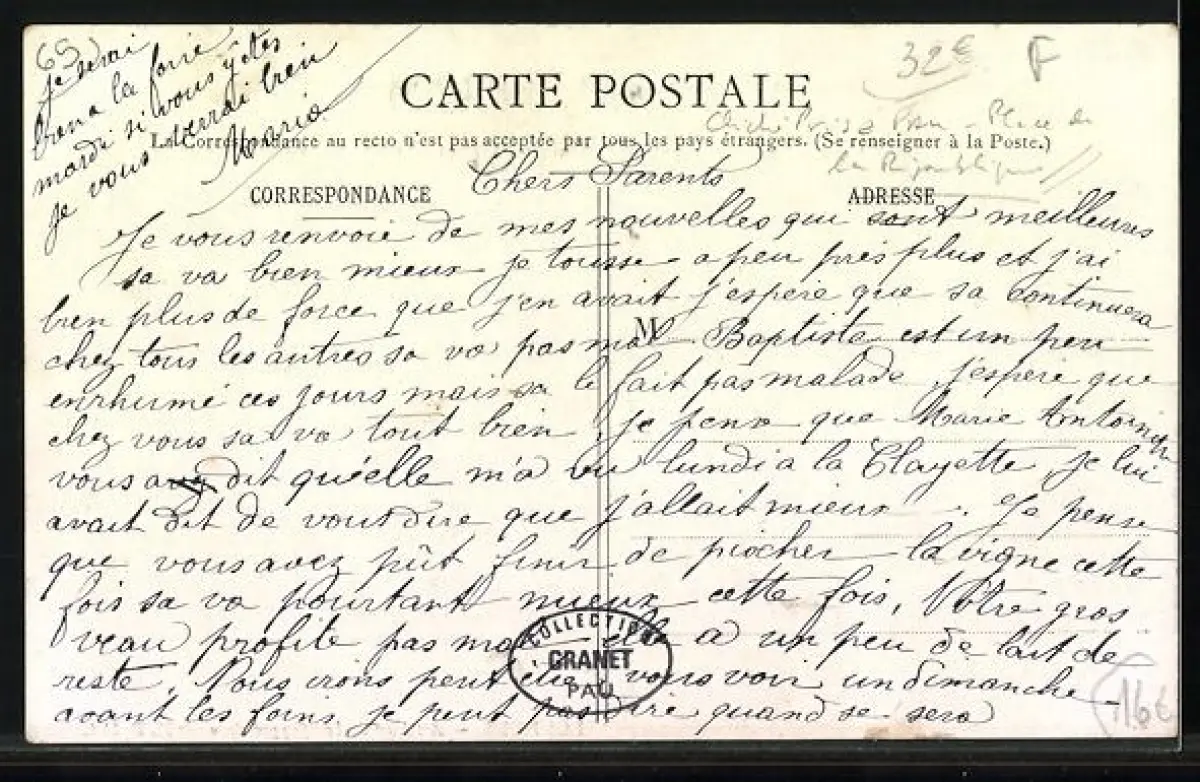 65
je serai
bran a la foire
mardi si vous y êtes
je vous verrai bien
Maria
32€ F
CARTE POSTALE
La Correspondance au recto n'est pas acceptée par tous les pays étrangers. (Se renseigner à la Poste.)
Place de
la République
CORRESPONDANCE
ADRESSE
Chers Parents
Je vous renvoie de mes nouvelles qui sont meilleures
sa va bien mieux je tousse a peu près plus et j'ai
bien plus de force que j'en avait j'espère que sa continuera
chez tous les autres sa va pas mal. Baptiste est un peu
M
enrhumé ces jours mais sa le fait pas malade, j'espère que
chez vous sa va tout bien, je pense que Marie Antoinette
vous a dit qu'elle m'a vu lundi a la Clayette, je lui
avait dit de vous dire que j'allait mieux. Je pense
que vous avez pût finir de piocher la vigne cette
fois sa va pourtant mieux cette fois, Votre gros
veau profite pas mal elle a un peu de lait de
reste, Nous irons peut être vous voir un dimanche
avant les foins je peut pas dire quand se sera
COLLECTION
GRANET
PAU
16€